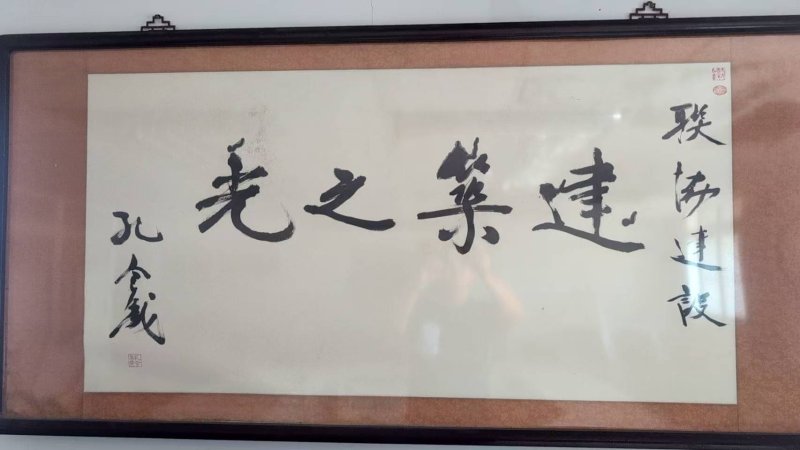 聯協建設
建築之光
孔令義